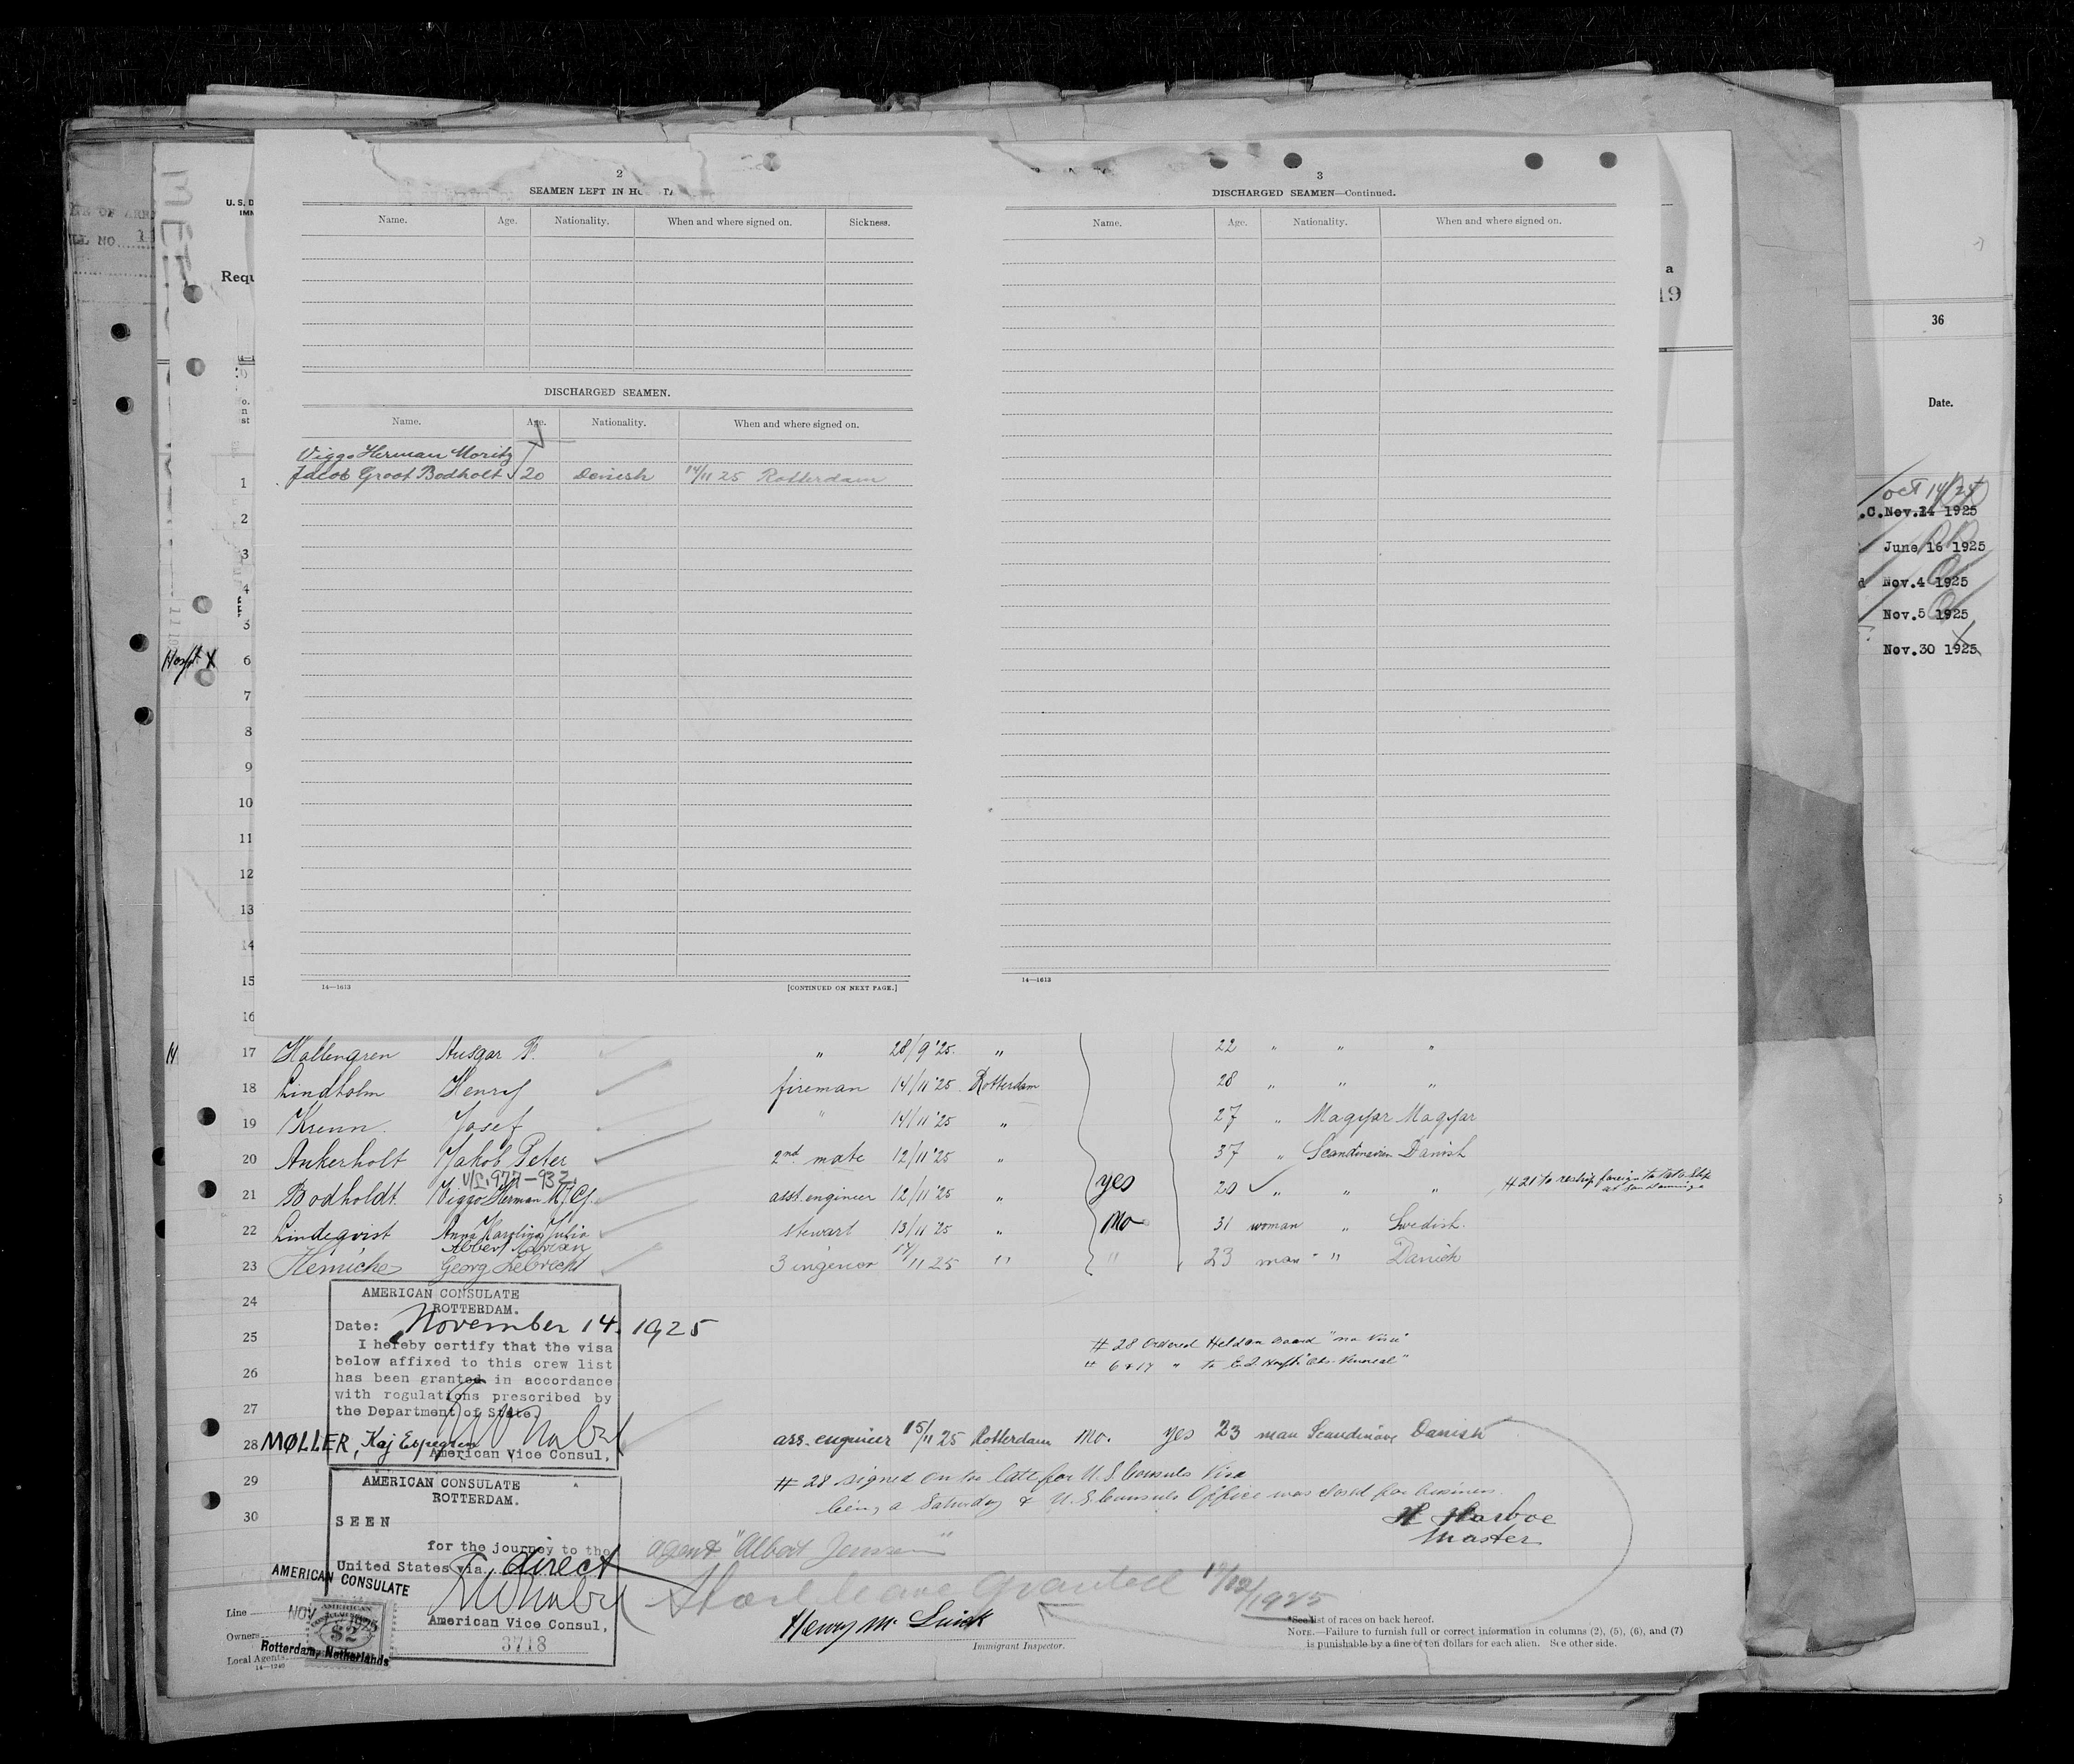 2
SEAMEN LEFT IN
Name. Age. Nationality. When and where signed on. Sickness.
DISCHARGED SEAMEN.
Name. Age. Nationality. When and where signed on.
Viggo Herman Moritz
Jacob Groot Bodholt 20 Danish 14/11 25 Rotterdam
14—1613 [CONTINUED ON NEXT PAGE.]
3
DISCHARGED SEAMEN—Continued.
Name. Age. Nationality. When and where signed on.
14—1613
U. S. D
IMM
Requ
a
19
1
2
3
4
5
Hospt. X 6
7
8
9
10
11
12
13
14
15
16
H 17 Hallengren Ansgar " 28/9 '25. " 22 " " "
18 Lindholm Henry fireman 14/11 '25 Rotterdam 28 " " "
19 Krenn. Josef " 14/11 '25 " 27 " Magyar Magyar
20 Ankerholt Jakob Peter 2nd mate 12/11 '25 " 37 " Scandinavian Danish
21 Bodholdt. Viggo Herman M.J.G. asst. engineer 12/11 '25 " yes 20 " " " # 21 to reship foreign
22 Lindeqvist Anna Karolina Julia stewart 13/11 '25 " No 31 woman " Swedish.
23 Georg Lebrecht 3 ingenior 14/11 25 " " 23 man " Danish
24
25
26
27
AMERICAN CONSULATE
ROTTERDAM.
Date: November 14. 1925
I hereby certify that the visa
below affixed to this crew list
has been granted in accordance
with regulations prescribed by
the Department of State.
American Vice Consul,
# 28 Ordered Held on Board "no Visa"
" 6 & 17 " to E.I. Hospt.
28 MØLLER, Kaj Espegren ass. engineer 15/11 25 Rotterdam No. yes 23 man Scandinav Danish
29
30
# 28 signed on too late for U.S. Consuls Visa
being a Saturday & U.S. Consuls Office was closed for business.
H Harboe
Master
AMERICAN CONSULATE
ROTTERDAM.
SEEN
for the journey to the
United States via direct
American Vice Consul,
3718
agent "Albert Jensen"
Shore leave granted 1925
AMERICAN CONSULATE
NOV 1925
AMERICAN
$2
Rotterdam, Netherlands
Line
Owners
Local Agents
14—1240
Henry Mc
Immigrant Inspector.
*See list of races on back hereof.
NOTE.—Failure to furnish full or correct information in columns (2), (5), (6), and (7)
is punishable by a fine of ten dollars for each alien. See other side.
36
Date.
oct 14/25
.C. Nov.14 1925
June 16 1925
d Nov.4 1925
Nov.5 1925
Nov.30 1925